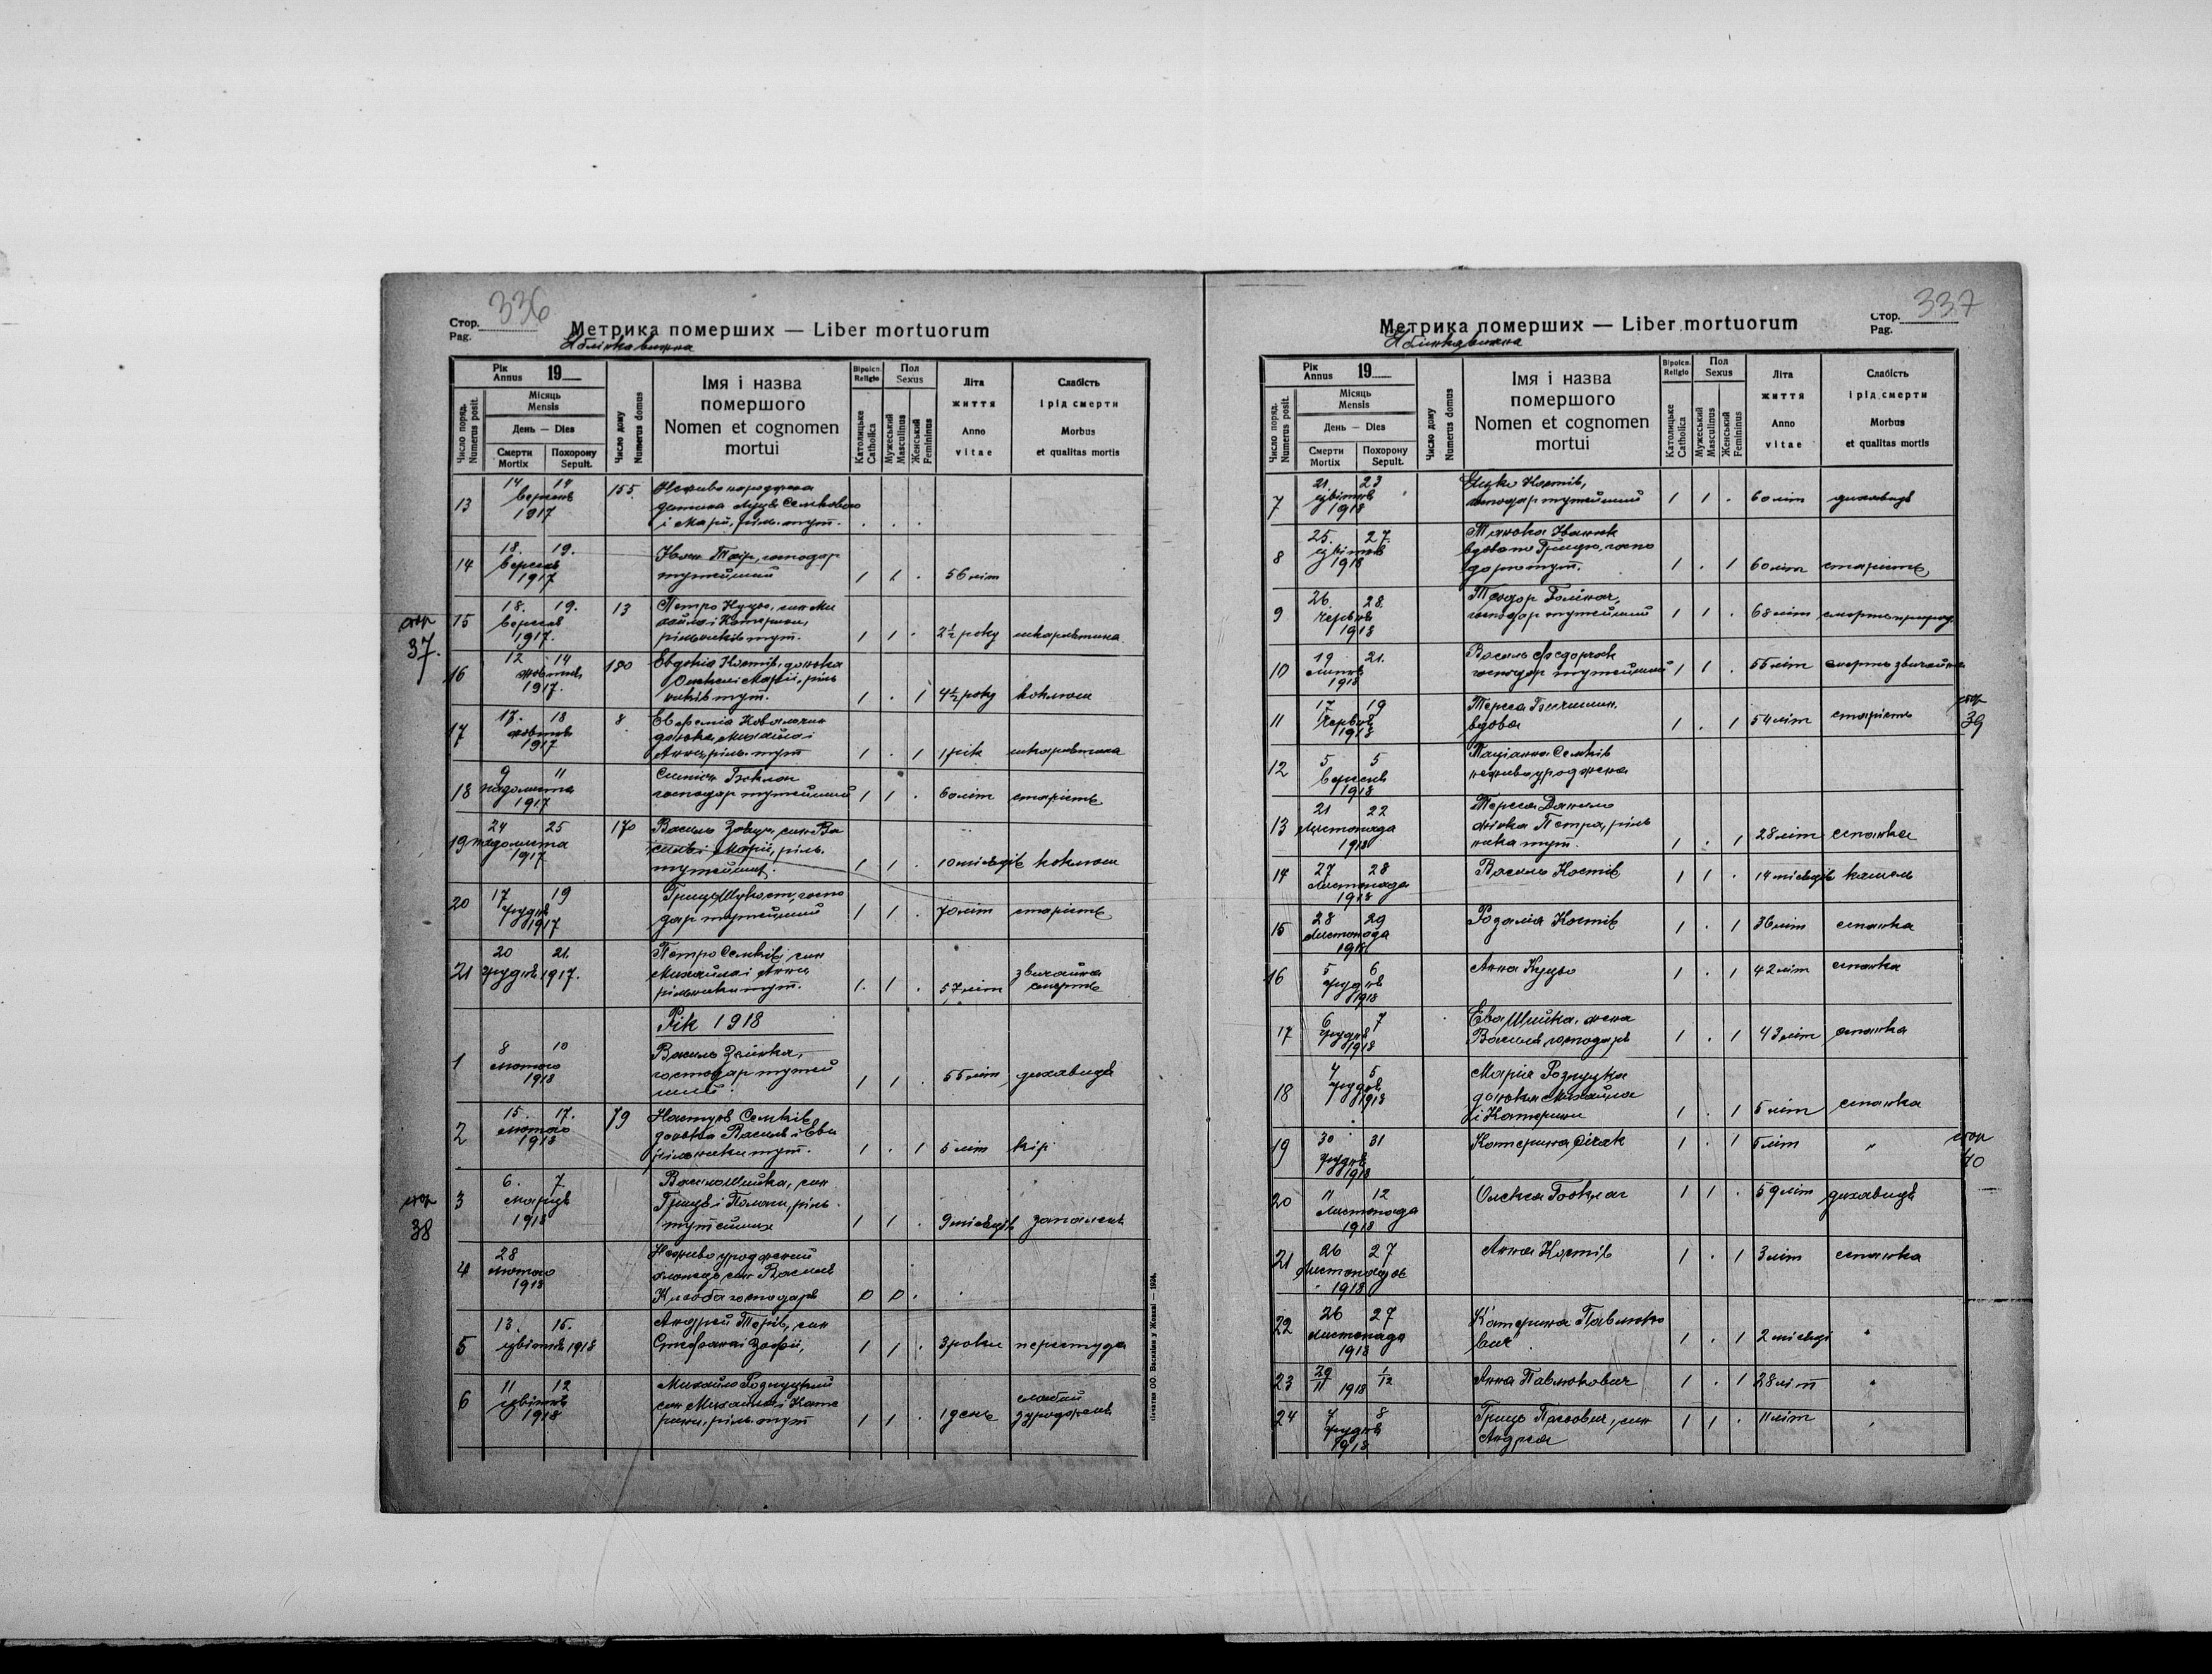 336
Стор.
Pag.
Метрика померших — Liber mortuorum
Яблінка вижна
Рік
Annus 19
Місяць
Mensis
День — Dies
Число поряд.
Numerus posit.
Смерти
Mortix
Похорону
Sepult.
Число дому
Numerus domus
Імя і назва
помершого
Nomen et cognomen
mortui
Віроісп.
Religio
Католицьке
Catholica
Пол
Sexus
Мужеський
Masculinus
Женський
Femininus
Літа
життя
Anno
vitae
Слабість
і рід смерти
Morbus
et qualitas mortis
13 14 14 вересня 1917 155
дитина Луця Семкового
і Марії, ріль. тут.
14 18. 19. вересня 1917
Іван господар
тутейший 1 1 . 56 літ
стор 37.
15 18. 19. вересня 1917. 13
Петро Куцьо, син Ми
хайла і Катерини,
рільників тут. 1 1 . 2½ року шкарлятина
16 12 14 жовтня 1917. 180
Евдокія Костів, донька
Олекси і Марії, ріль
ників тут. 1 . 1 4½ року коклюш
17 17. 18 жовтня 1917 8
Евфемія
донька Михайла і
Анни, ріль. тут 1 . 1 1 рік шкарлятина
18 9 11 падолиста 1917
господар тутейший 1 1 . 60 літ старість
19 24 25 падолиста 1917 170
Василь син Ва
силя і Марії, ріль.
тутейших. 1 1 . 10 місяців коклюш
20 17 19 грудня 1917
Гриць госпо
дар тутейший 1 1 . 70 літ старість
21 20 21. грудня 1917.
Петро Семків, син
Михайла і Анни
рільники тут. 1. 1 . 57 літ звичайна смерть
Рік 1918
1 8 10 лютого 1918
Василь
господар тутей
ший. 1 1 . 55 літ духавиця
2 15. 17. лютого 1918 79
Настуня Семків,
донька Василя і Еви
рільники тут. 1 . 1 5 літ кір
стор 38
3 6. 7. марця 1918
Василь Шийка, син
Гриця і ріль.
тутейших 1 1 . 9 місяців запалення
4 28 лютого 1918
Неживо уроджений
хлопець, син Василя
господаря 0 0 .
5 13. 15. цвітня 1918
Андрей син
Стефана і Зофії, 1 1 . 3 роки перестуда
6 11 12 цвітня 1918
Михайло Розлуцкий
син Михайла і Кате
рини, ріль. тут 1 1 . 1 день слабий з уродження
Печатня ОО. Василіян у Жовкві — 1924.
337
Стор.
Pag.
Метрика померших — Liber mortuorum
Яблінка вижна
Рік
Annus 19
Місяць
Mensis
День — Dies
Число поряд.
Numerus posit.
Смерти
Mortix
Похорону
Sepult.
Число дому
Numerus domus
Імя і назва
помершого
Nomen et cognomen
mortui
Віроісп.
Religio
Католицьке
Catholica
Пол
Sexus
Мужеський
Masculinus
Женський
Femininus
Літа
життя
Anno
vitae
Слабість
і рід смерти
Morbus
et qualitas mortis
7 21. 23 цвітня 1918
Яцко Костів,
господар тутейший 1 1 . 60 літ духавиця
8 25. 27. цвітня 1918
Іванюк
вдова по Грицю, госпо
даря тут. 1 . 1 60 літ старість
9 26. 28. червня 1918
Теодор
господар тутейший 1 1 . 68 літ смерть природ.
10 19 21. липня 1918
Василь Федорчак
господар тутейший 1 1 . 55 літ смерть звичайна
11 17 19 червня 1918
Тереса
вдова 1 . 1 54 літ старість
стор 39
12 5 5 вересня 1918
Таціанна Семків
неживо уроджена
13 21 22 Листопада 1918
Тереса Данило
жінка Петра, ріль
ника тут. 1 . 1 28 літ испанка
14 27 28 Листопада 1918
Василь Костів 1 1 . 14 місяців кашель
15 28 29 Листопада 1918
Розалія Костів 1 . 1 36 літ испанка
16 5 6 грудня 1918
Анна Куцьо 1 . 1 42 літ испанка
17 6 7 грудня 1918
Ева Шийка, жена
Василя господаря 1 . 1 43 літ испанка
18 4 5 грудня 1918
Марія Розлуцка
донька Михайла
і Катерини 1 . 1 5 літ испанка
19 30 31 грудня 1918
Катерина Січак 1 . 1 5 літ "
стор 40
20 11 12 Листопада 1918
Олекса 1 1 . 59 літ духавиця
21 26 27 Листопада 1918
Анна Костів 1 . 1 3 літ испанка
22 26 27 Листопада 1918
Катерина Павлюко
вич 1 . 1 2 місяці "
23 29/11 1918 1/12
Анна Павлюкович 1 . 1 28 літ "
24 7 8 грудня 1918
Гриць син
Андрея 1 1 . 11 літ "